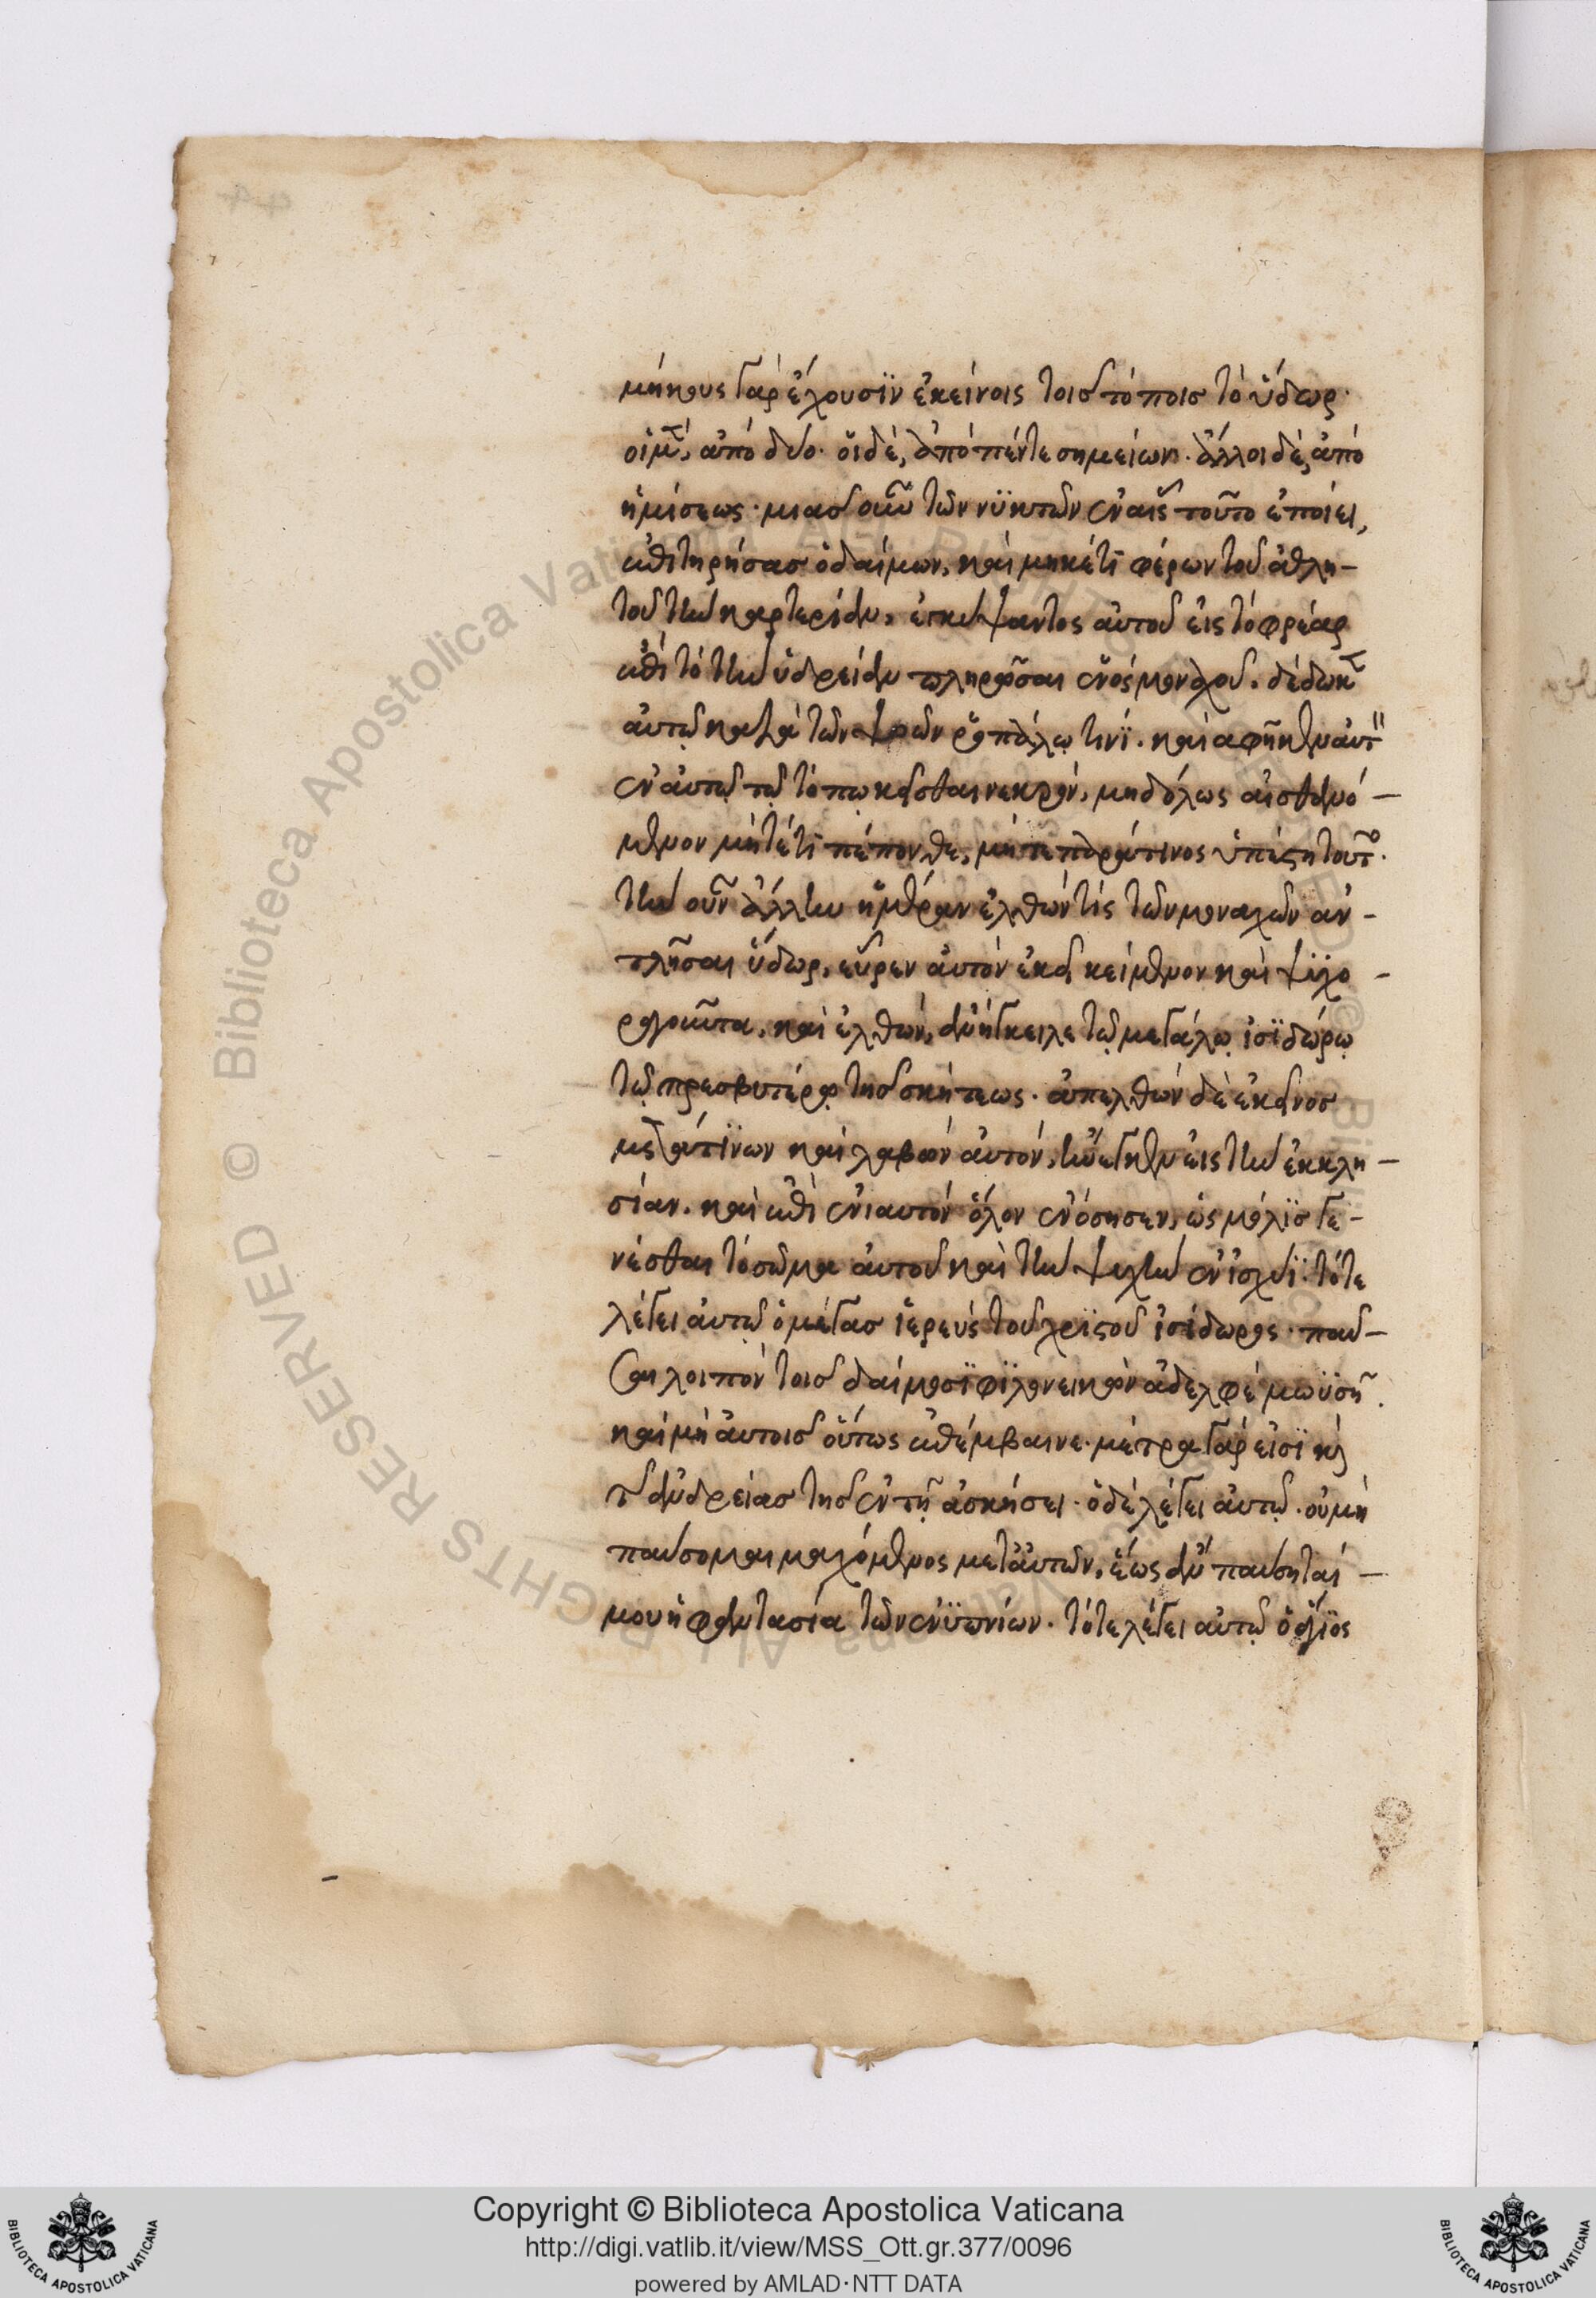 μήκους γὰρ ἔχουσϊν ἐκείνοις τοισ τόποισ τὸ ὕδωρ·
οἱ μ(ὲν), ἀπὸ δύο· ὅι δὲ, ἀπὸ πέντε σημείων· ἄλλοι δὲ, ἀπὸ
ἡμίσεως· μιασ οὖν τῶν νϋκτῶν ἐν αἷς τοῦτο ἐποίει,
ἐπιτηρήσασ ὁ δαίμων, καὶ μηκέτι φέρων τοῦ ἀθλη-
τοῦ τὴν καρτερίαν, ἐπικύψαντος αὐτοῦ εἰς τὸ φρέαρ
ἐπὶ τὸ τὴν ὑδρείαν πληρῶσαι ἑνός μοναχοῦ. δέδωκ(εν)
αὐτῷ κατὰ τῶν ψοῶν ῥοπάλῳ τινϊ· καὶ ἀφῆκεν ἀυτ(ὸν)
ἐν ἀυτῷ τῷ τόπῳ κεῖσθαι νεκρόν, μηδόλως αἰσθανό-
μενον μήτε τί πέπονθε, μήτε παρά τινος ὑπέστη τοῦτο.
τὴν οὖν ἄλλην ἡμέραν ἐλθών τίς τῶν μοναχῶν ἀν-
τλῆσαι ὕδωρ, εὗρεν ἀυτὸν ἐκεῖ κείμενον καὶ ψϋχο-
ρραγοῦντα. καὶ ἐλθών, ἀνήγγειλε τῷ μεγάλῳ ἰσϊδώρῳ
τῷ πρεσβυτέρῳ τῆσ σκήτεως· ἀπελθὼν δὲ ἐκεῖνοσ
μετά τϊνων καὶ λαβὼν ἀυτόν, ἀνήγαγεν εἰς τὴν ἐκκλη-
σίαν. καὶ ἐπὶ ἐνιαυτὸν ὅλον ἐνόσησεν, ὡς μόλϊσ γε-
νέσθαι τὸ σῶμα ἀυτοῦ καὶ τὴν ψυχὴν ἐν ἰσχύϊ· τότε
λέγει ἀυτῷ ὁ μέγασ ἱερεὺς τοῦ χριστοῦ ἰσίδωρος· παῦ-
σαι λοιπὸν τοισ δαίμοσϊ φϊλονεικῶν ἀδελφὲ μωϋσῆ.
καὶ μὴ ἀυτοισ οὕτως ἐπέμβαινε· μέτρα γὰρ εἰσϊ κ(αὶ)
τῆς ἀνδρείασ τῆσ ἐν τῇ ἀσκήσει· ὁ δὲ λέγει ἀυτῷ· οὐ μὴ
παύσομαι μαχόμενος μετ' ἀυτῶν, ἕως ἂν παύσηταί
μου ἡ φαντασία τῶν ἐνϋπνίων· τότε λέγει αὐτῷ ὁ ἅγιος
Copyright © Biblioteca Apostolica Vaticana
http://digi.vatlib.it/view/MSS_Ott.gr.377/0096
powered by AMLAD·NTT DATA